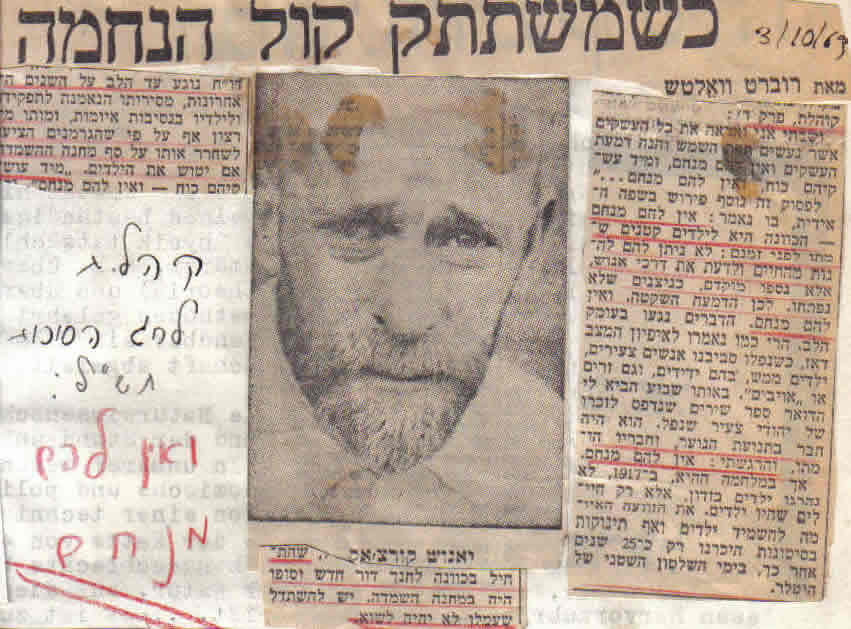 כשמשתתק קול הנחמה
3/10/69
מאת רוברט וואֶלטש
קוהלת, פרק ד':
"ושבתי אני ואראה את כל העשקים
אשר נעשים תחת השמש והנה דמעת
העשקים ואין להם מנחם, ומיד עש־
קיהם כוח ואין להם מנחם..."
לפסוק זה נוסף פירוש בשפה ה־
אידית, בו נאמר: אין להם מנחם
— הכוונה היא לילדים קטנים ש־
מתו לפני זמנם: לא ניתן להם לה־
נות מהחיים ולדעת את דרכי אנוש,
אלא נספו מוקדם, כניצנים שלא
נפתחו. לכן הדמעה השקטה, ואין
להם מנחם. הדברים נגעו בעומק
הלב, הרי כמו נאמרו לאיפיון המצב
דאז, כשנפלו סביבנו אנשים צעירים,
ילדים ממש, בהם ידידים, וגם זרים
או "אויבים". באותו שבוע הביא לי
הדואר ספר שירים שנדפס לזכרו
של יהודי צעיר שנפל. הוא היה
חבר בתנועת הנוער, וחבריו הד
מתו. והרגשתי: אין להם מנחם.
אך במלחמה ההיא, ב־1917, לא
נהרגו ילדים בזדון, אלא רק חיי־
לים שהיו ילדים. את הזוועה האיו־
מה להשמיד ילדים ואף תינוקות
בסיטונות היכרנו רק כ־25 שנים
אחר כך, בימי השלטון השטני של
היטלר.
דו"ח נוגע עד הלב על השנים ה
אחרונות, מסירותו הנאמנה לתפקידו
ולילדיו בנסיבות איומות, ומותו מ
רצון אף על פי שהגרמנים הציעו
לשחרר אותו על סף מחנה ההשמדה
אם יטוש את הילדים. "מיד עוש
קיהם כוח — ואין להם מנחם"
קהל.ג
לחג הסוכות
תש"ל.
ואין להם
מנחם
יאנוש קורצ'אק
"שהת־
חיל בכוונה לחנך דור חדש וסופו
היה במחנה השמדה. יש להשתדל
שעמלו לא יהיה לשוא.